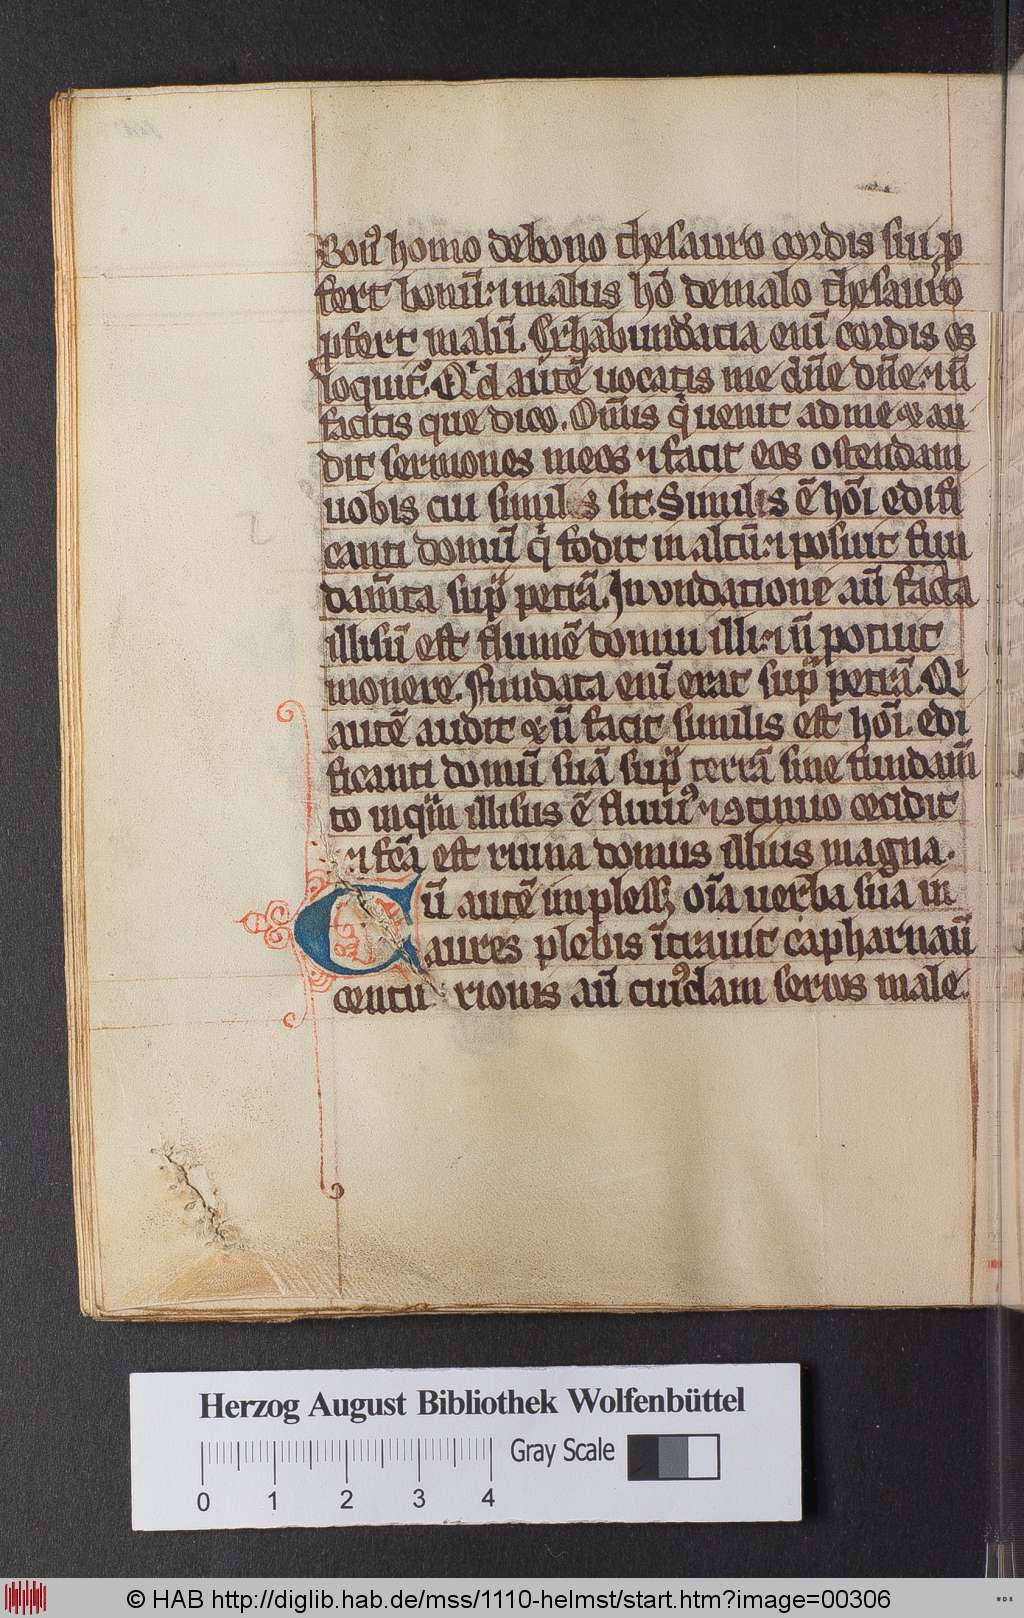 Bonꝰ homo de bono thesauro cordis sui ꝓ
fert bonū: ⁊ malus hō de malo thesauro
ꝓfert malū. Ex habundācia enī cordis os
loquit᷑. Qͥd autē uocatis me dn̄e dn̄e: ⁊ n̄
facitis que dico. Om̄is qͥ uenit ad me & au
dit sermones meos ⁊ facit eos ostendam
uobis cui similis sit: Similis ē hōi edifi
canti domū qͥ fodit in altū: ⁊ posuit fun
dam̄ta sup̄ petrā. Inundatione aū facta
illisū est flumē domui illi: ⁊ n̄ potuit
monere. Fundata enī erat sup̄ petrā. Qͥ
autē audit & n̄ facit similis est hōi. edi
ficanti domū suā sup̄ terrā sine fundam̄
to in qm̄ illisus ē fluuiꝰ ⁊ ꝯtinuo cecidit
⁊ fc̄a est ruina domus illius magna.
Cū autē impless; oīa uerba sua in
aures plebis īt᷑uit capharnaū
centurionis aū cuiꝰdam seruus male
Herzog August Bibliothek Wolfenbüttel
Gray Scale
0 1 2 3 4
© HAB http://diglib.hab.de/mss/1110-helmst/start.htm?image=00306